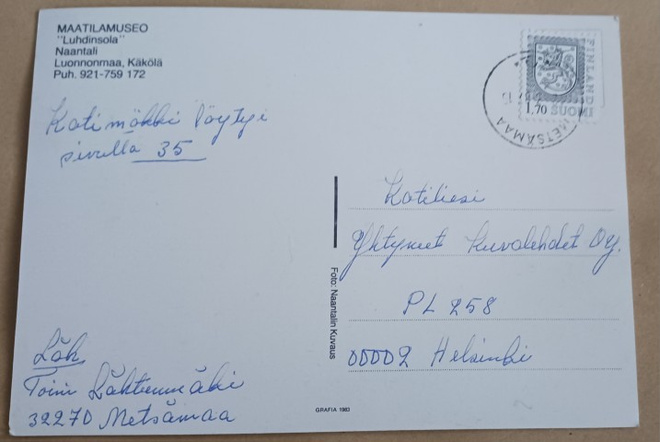 MAATILAMUSEO
"Luhdinsola"
Naantali
Luonnonmaa, Käkölä
Puh. 921-759 172
Kotimökki löytyi
sivulla 35
FINLAND
1,70 SUOMI
METSÄMAA
Kotiliesi
Yhtyneet Kuvalehdet Oy.
PL 258
00002 Helsinki
Foto: Naantalin Kuvaus
Läh
Toini Lähteenmäki
32270 Metsämaa
GRAFIA 1983